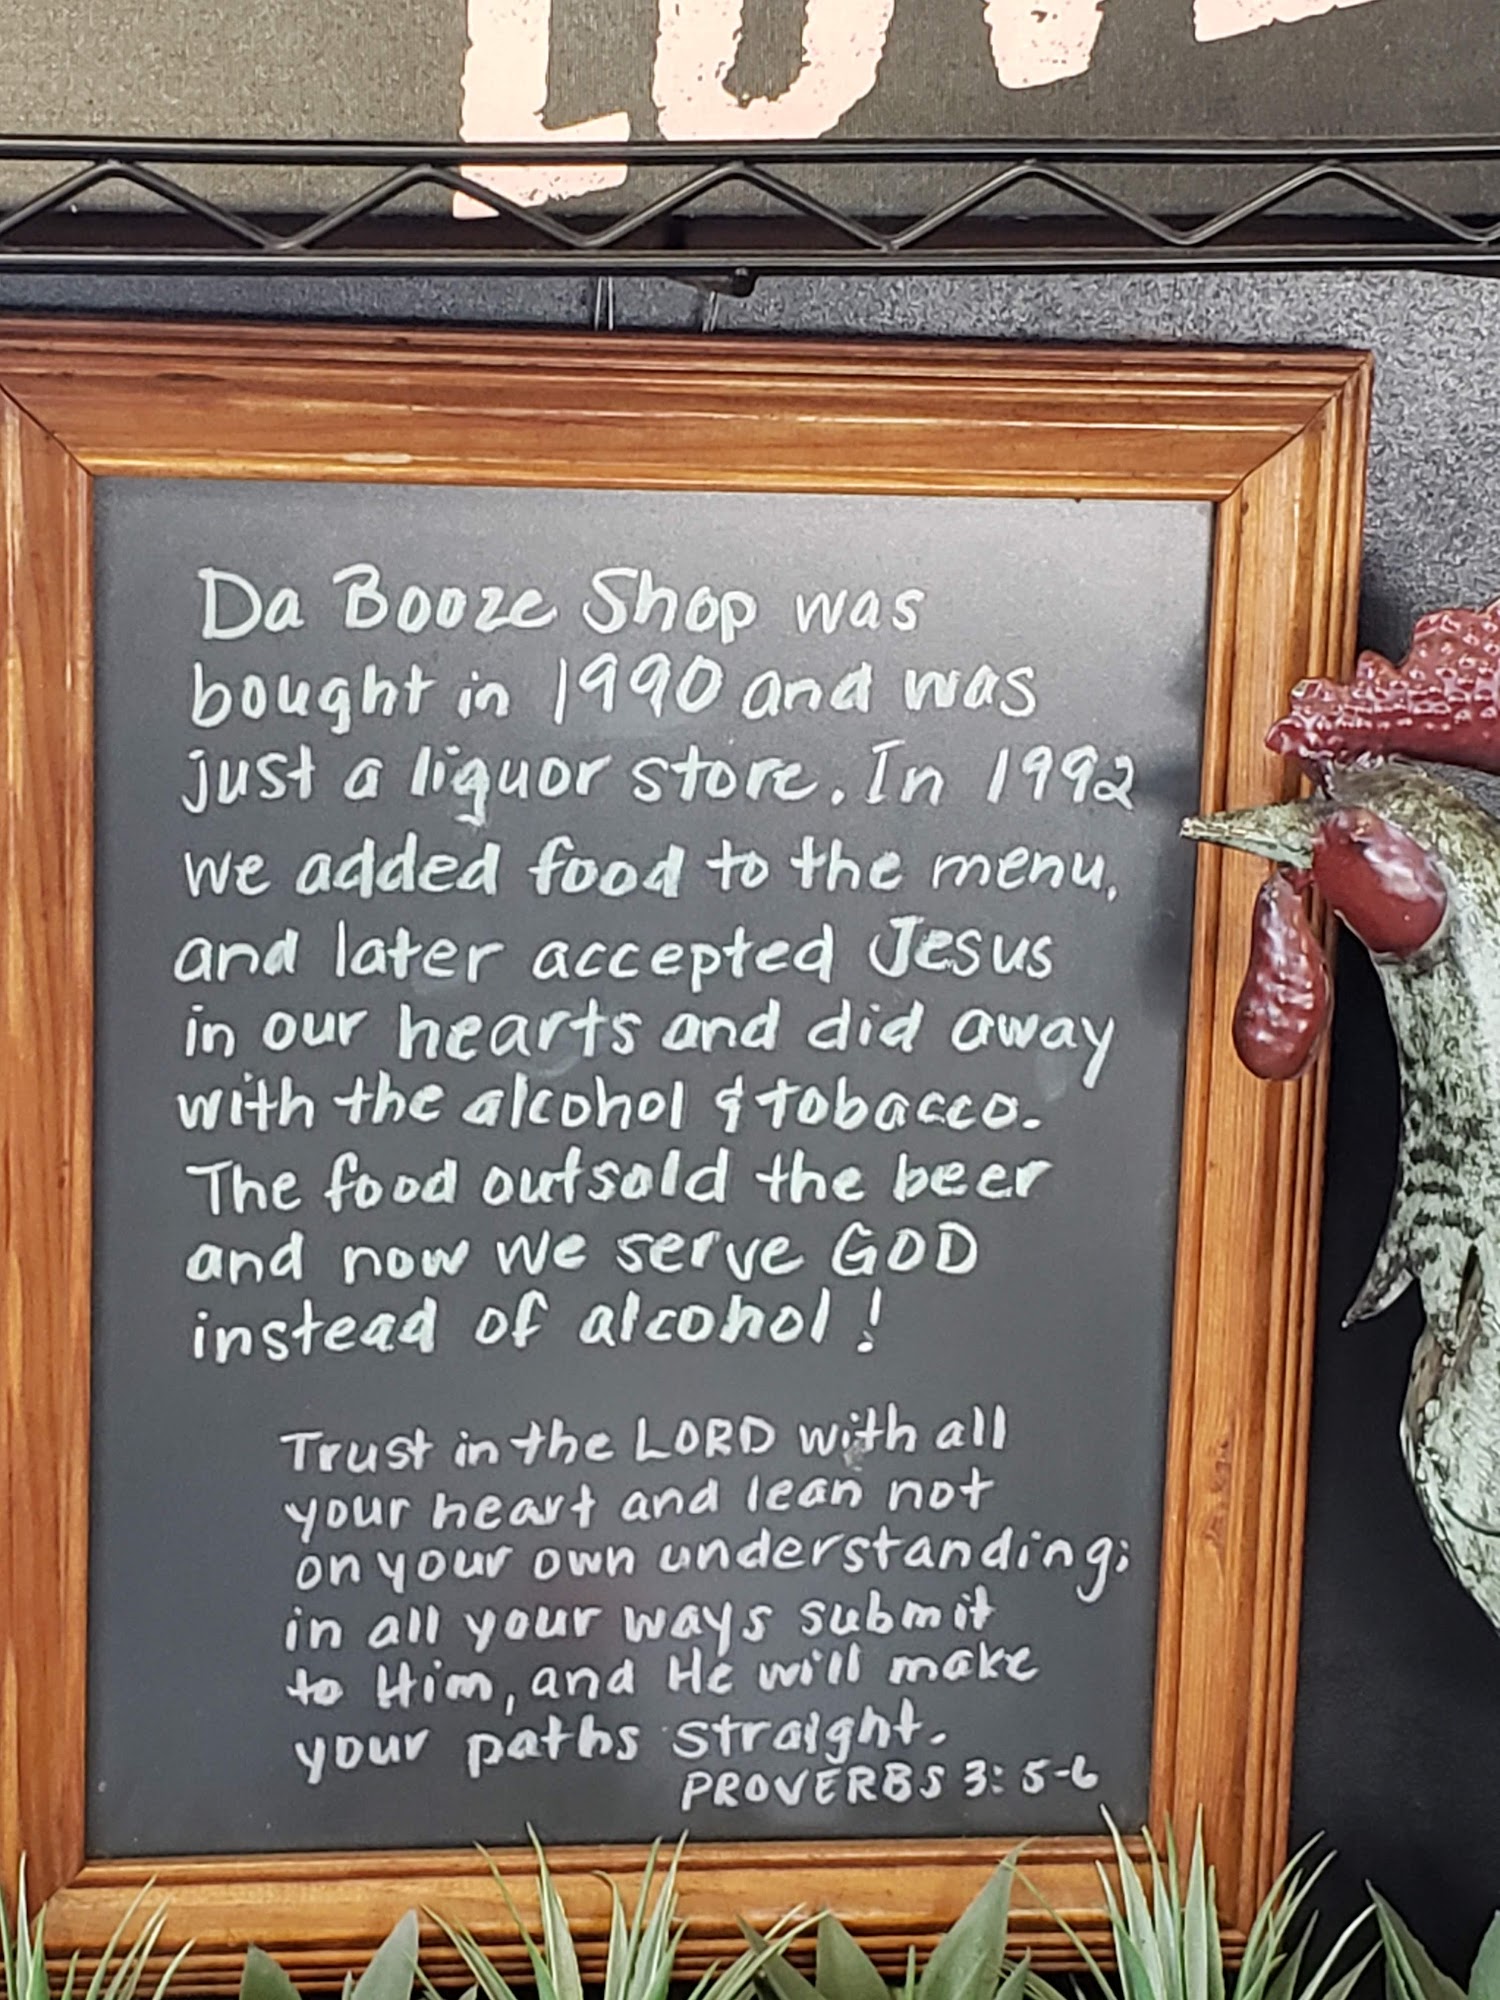 LOVE
Da Booze Shop was
bought in 1990 and was
just a liquor store. In 1992
we added food to the menu,
and later accepted Jesus
in our hearts and did away
with the alcohol & tobacco.
The food outsold the beer
and now we serve GOD
instead of alcohol!
Trust in the LORD with all
your heart and lean not
on your own understanding;
in all your ways submit
to Him, and He will make
your paths straight.
PROVERBS 3: 5-6